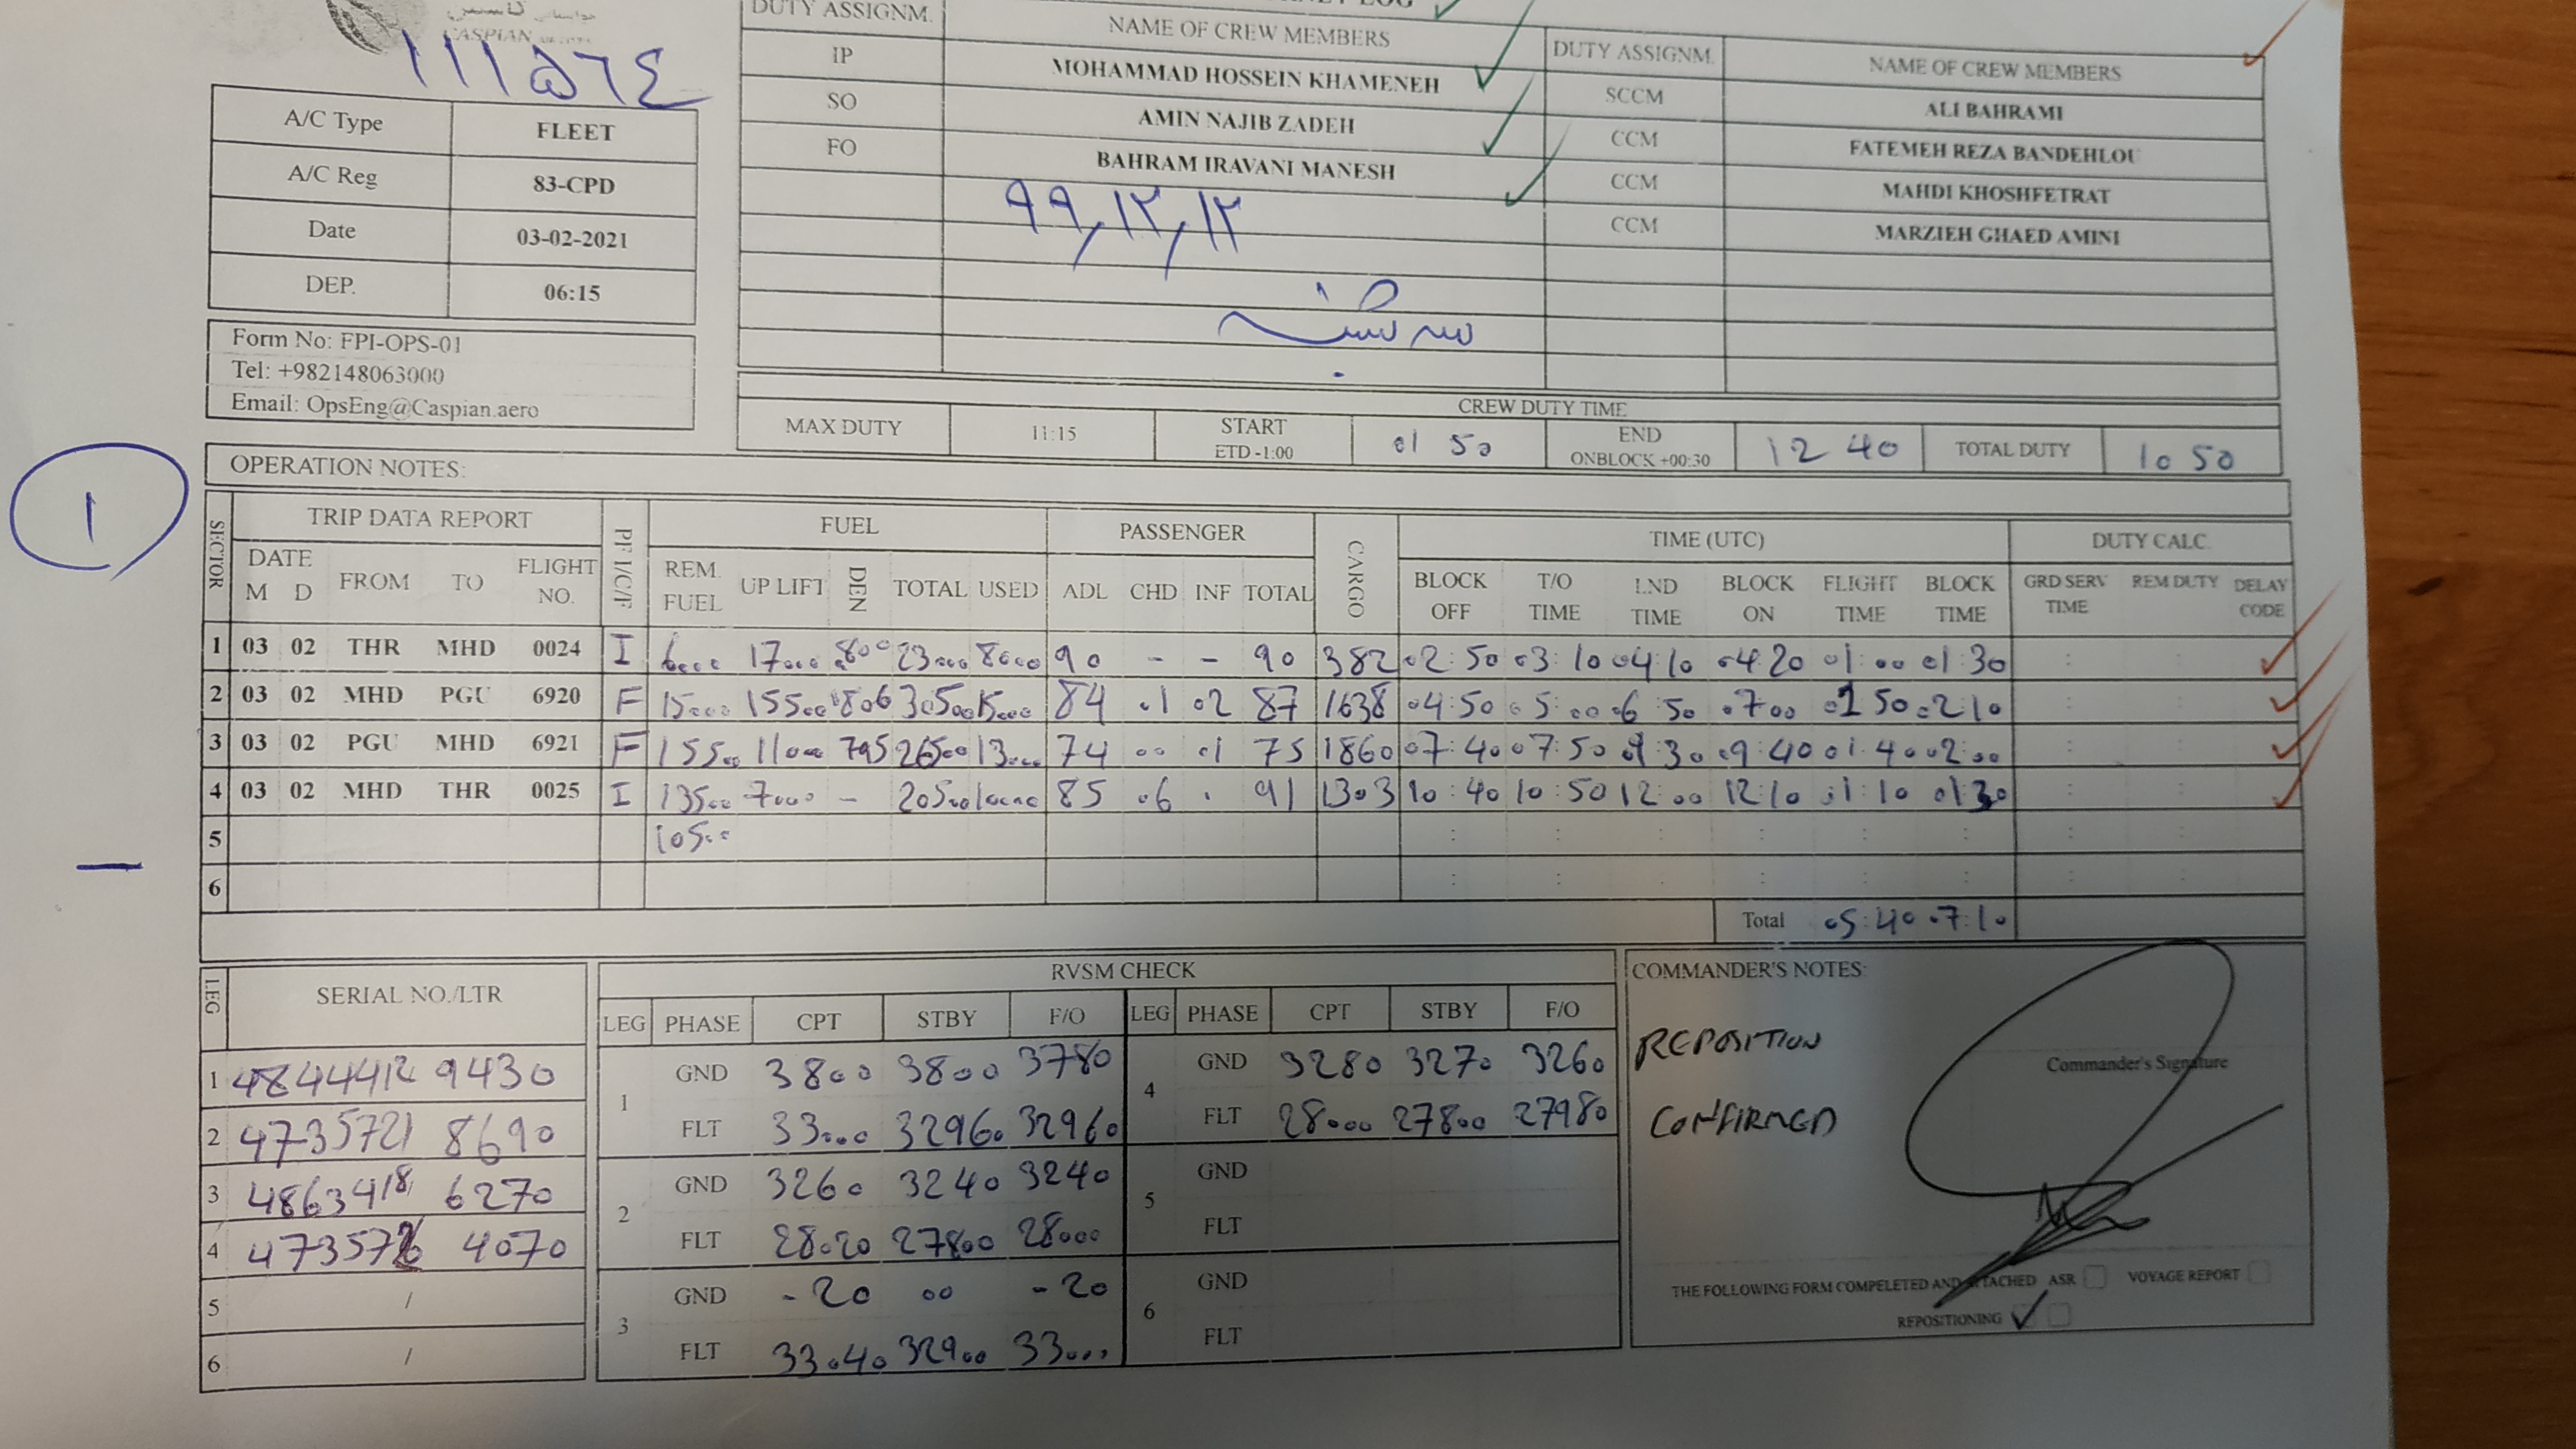 کاسپین
CASPIAN
۱۱۱۵۶۴
A/C Type FLEET
A/C Reg 83-CPD
Date 03-02-2021
DEP. 06:15
Form No: FPI-OPS-01
Tel: +982148063000
Email: OpsEng@Caspian.aero
LOG
DUTY ASSIGNM. NAME OF CREW MEMBERS DUTY ASSIGNM. NAME OF CREW MEMBERS
IP MOHAMMAD HOSSEIN KHAMENEH SCCM ALI BAHRAMI
SO AMIN NAJIB ZADEH CCM FATEMEH REZA BANDEHLOU
FO BAHRAM IRAVANI MANESH CCM MAHDI KHOSHFETRAT
CCM MARZIEH GHAED AMINI
۹۹,۱۲,۱۲
CREW DUTY TIME
MAX DUTY 11:15 START ETD -1:00 01 50 END ONBLOCK +00:30 12 40 TOTAL DUTY 10 50
OPERATION NOTES:
۱
SECTOR TRIP DATA REPORT PF I/C/F FUEL PASSENGER CARGO TIME (UTC) DUTY CALC.
DATE M D FROM TO FLIGHT NO. REM. FUEL UP LIFT DEN TOTAL USED ADL CHD INF TOTAL BLOCK OFF T/O TIME LND TIME BLOCK ON FLIGHT TIME BLOCK TIME GRD SERV TIME REM DUTY DELAY CODE
1 03 02 THR MHD 0024 I 6000 17000 800 23000 8000 90 - - 90 382 02:50 03:10 04:10 04:20 01:00 01:30
2 03 02 MHD PGU 6920 F 15000 15500 806 30500 15000 84 01 02 87 1638 04:50 05:00 06:50 07:00 01 50 02:10
3 03 02 PGU MHD 6921 F 15500 11000 795 26500 13000 74 00 01 75 1860 07:40 07:50 09:30 09:40 01:40 02:00
4 03 02 MHD THR 0025 I 13500 7000 - 20500 10000 85 06 0 91 1303 10:40 10:50 12:00 12:10 01:10 01:30
5 10500
6
Total 05:40 07:10
LEG SERIAL NO./LTR
1 4844412 9430
2 4735721 8690
3 4863418 6270
4 4070
5 /
6 /
RVSM CHECK
LEG PHASE CPT STBY F/O LEG PHASE CPT STBY F/O
1 GND 3800 3800 3780 4 GND 3280 3270 3260
FLT 33000 32960 32960 FLT 28000 27800 27980
2 GND 3260 3240 3240 5 GND
FLT 28020 27800 28000 FLT
3 GND -20 00 -20 6 GND
FLT 33040 32900 33000 FLT
COMMANDER'S NOTES:
REPOSITION
CONFIRMED
Commander's Signature
THE FOLLOWING FORM COMPELETED AND ATTACHED ASR VOYAGE REPORT
REPOSITIONING